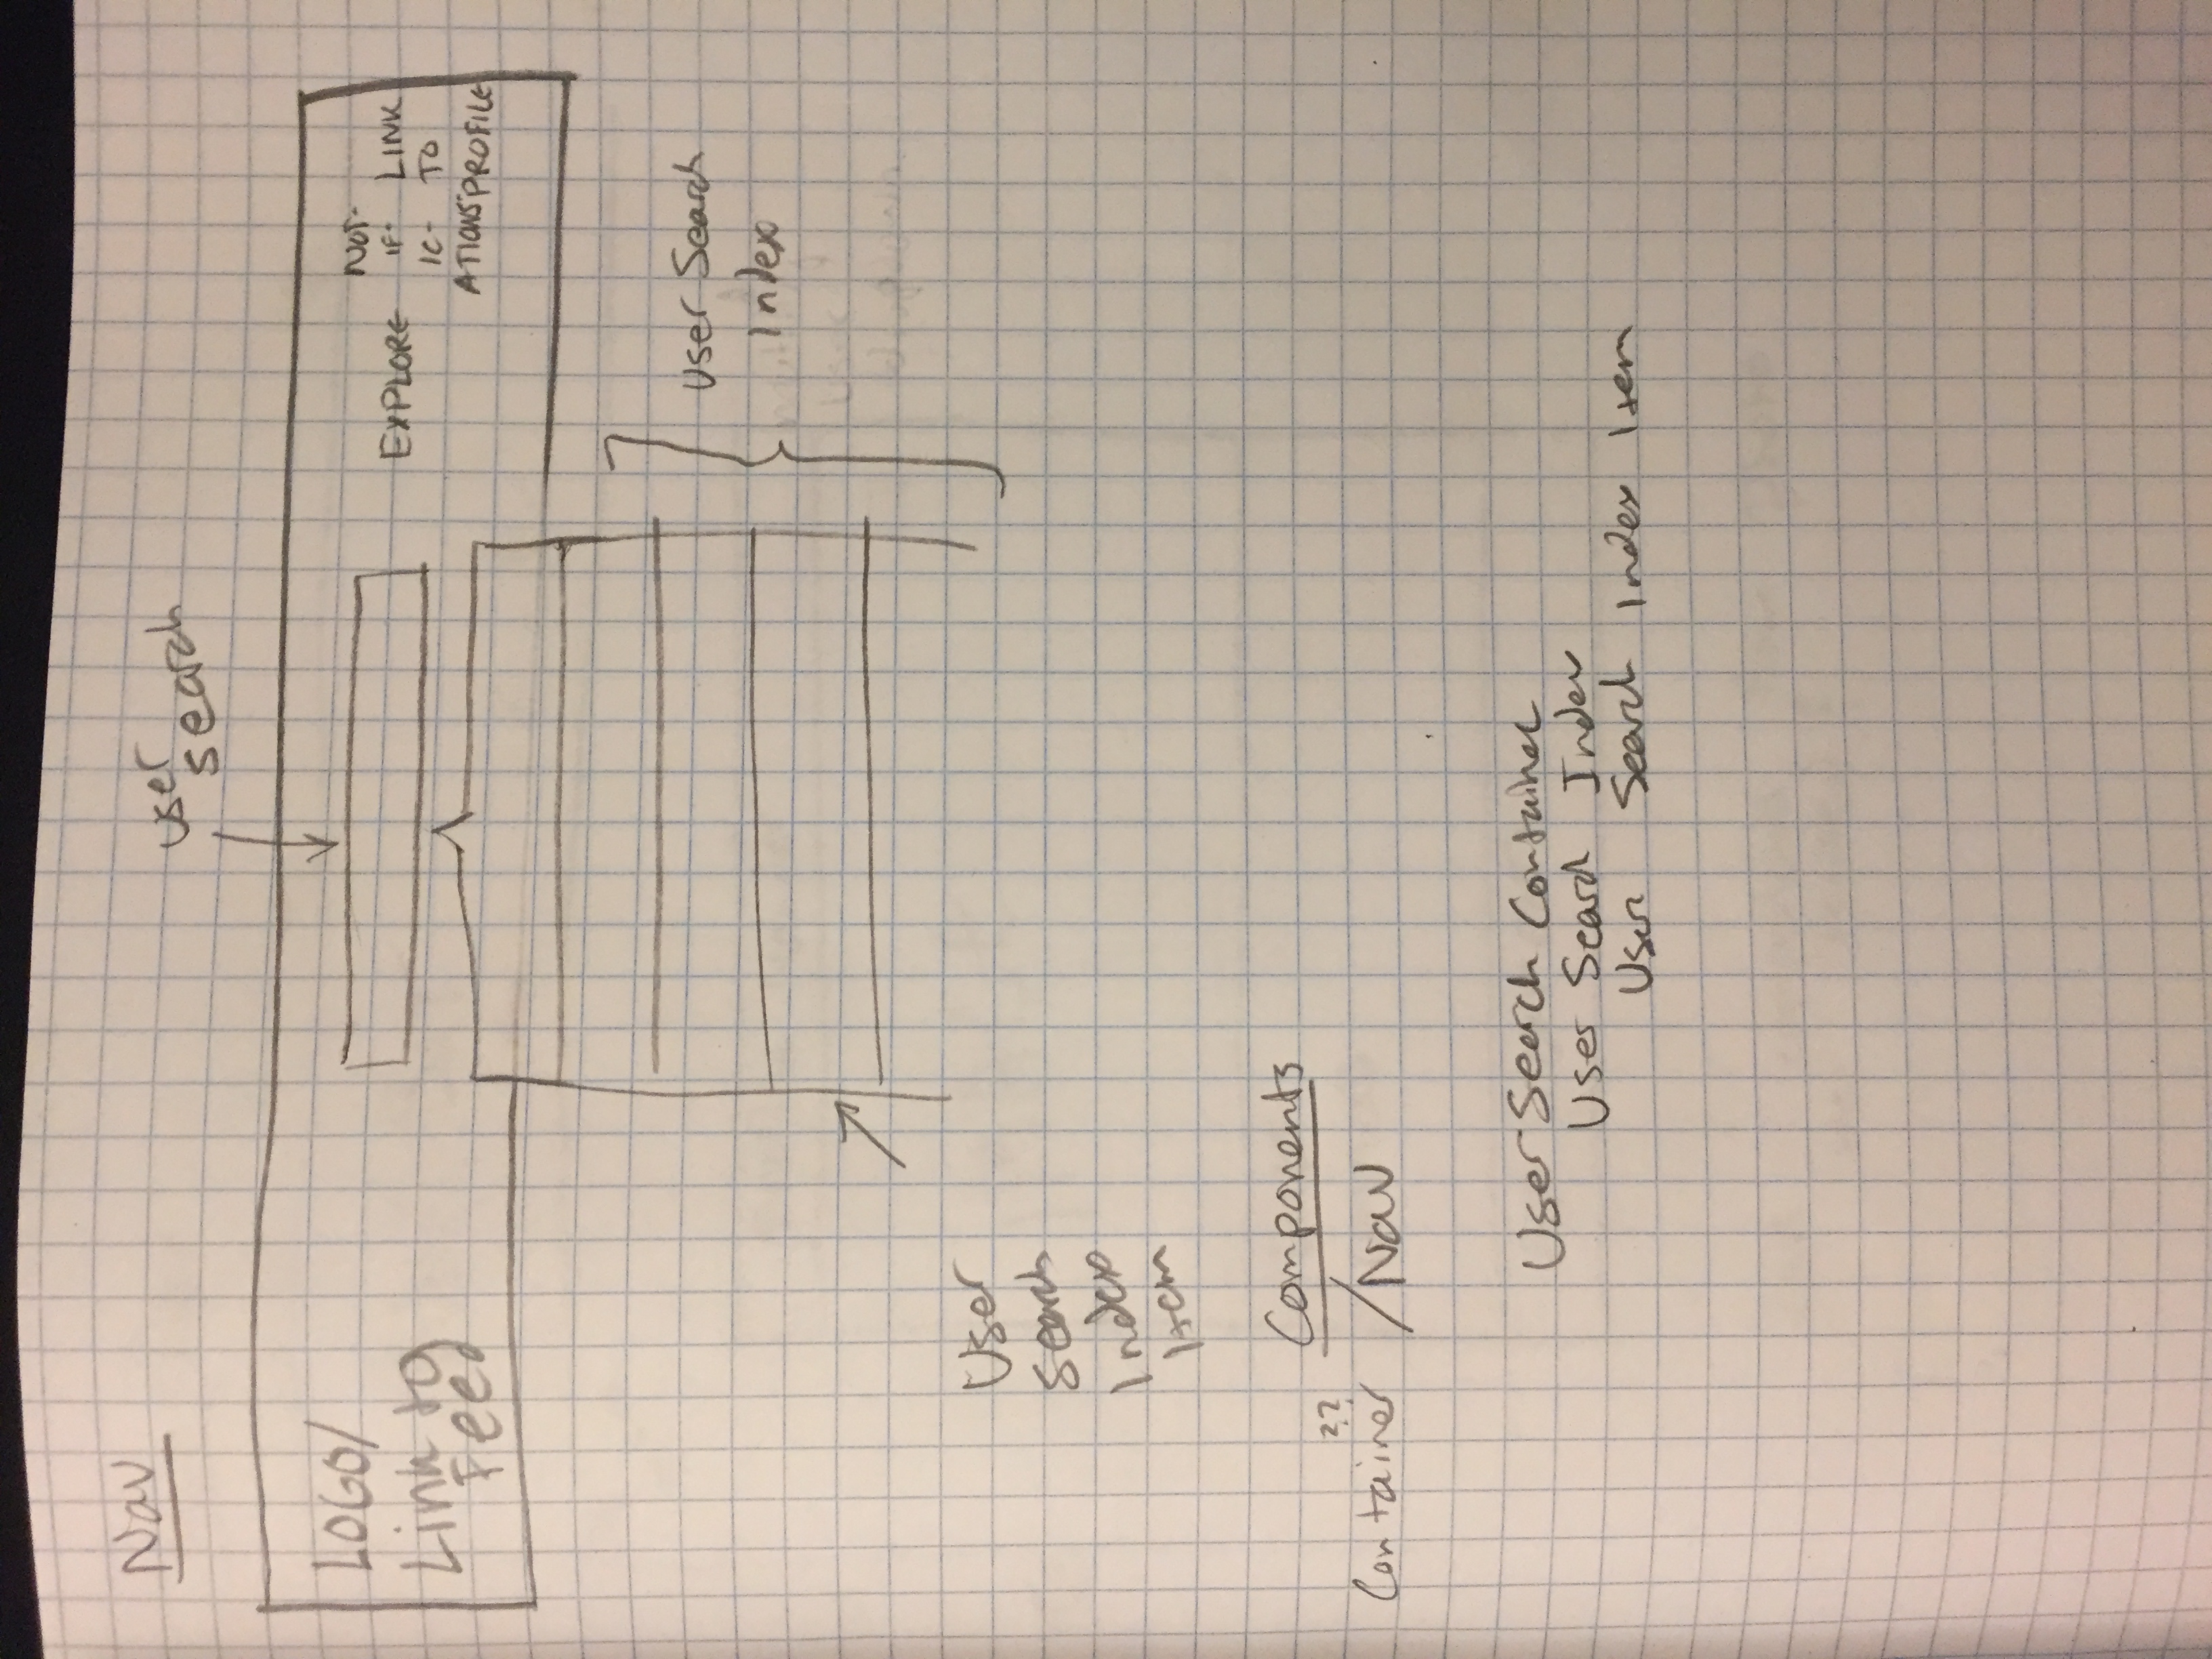 Nav
user
search
LOGO/
Link to
Feed
EXPLORE
NOT-
IF-
IC-
ATIONS
LINK
TO
PROFILE
User Search
Index
User
Search
Index
Item
Components
??
Container /Nav
User Search Container
User Search Index
User Search Index Item